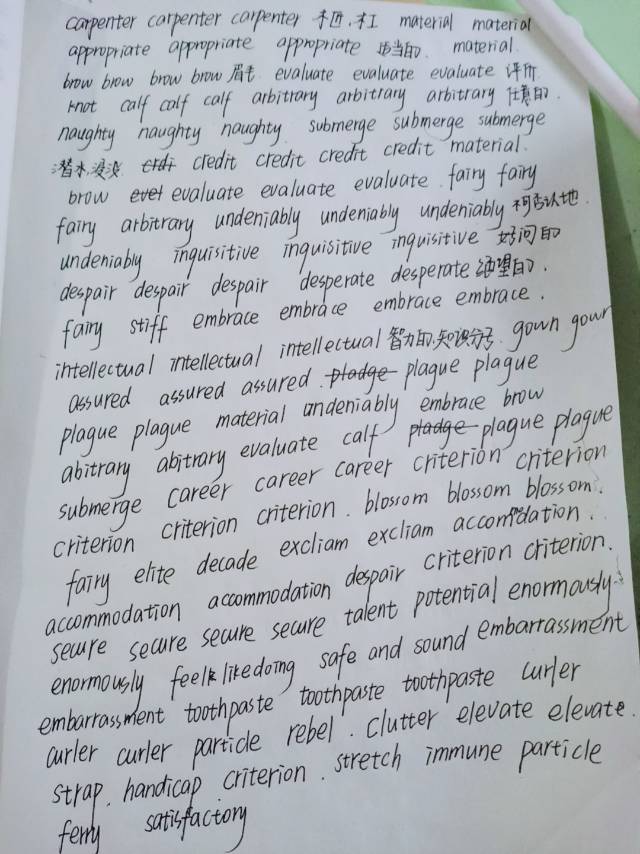 carpenter carpenter carpenter 木匠,木工 material material
appropriate appropriate appropriate 适当的. material.
brow brow brow brow 眉毛 evaluate evaluate evaluate 评价
knot calf calf calf arbitrary arbitrary arbitrary 任意的.
naughty naughty naughty. submerge submerge submerge
潜水,浸没 credit credit credit credit material.
brow evel evaluate evaluate evaluate. fairy fairy
fairy arbitrary undeniably undeniably undeniably 不可否认地.
undeniably inquisitive inquisitive inquisitive 好问的
despair despair despair desperate desperate 绝望的.
fairy stiff embrace embrace embrace embrace.
intellectual intellectual intellectual 智力的,知识分子. gown gown
assured assured assured. pladge plague plague
plague plague material undeniably embrace brow
abitrary abitrary evaluate calf pladge plague plague
submerge career career career criterion criterion
criterion criterion criterion. blossom blossom blossom.
fairy elite decade excliam excliam accommodation.
accommodation accommodation despair criterion criterion.
secure secure secure secure talent potential enormously
enormously feel like doing safe and sound embarrassment
embarrassment toothpaste toothpaste toothpaste curler
curler curler particle rebel. clutter elevate elevate.
strap. handicap criterion. stretch immune particle
ferry satisfactory